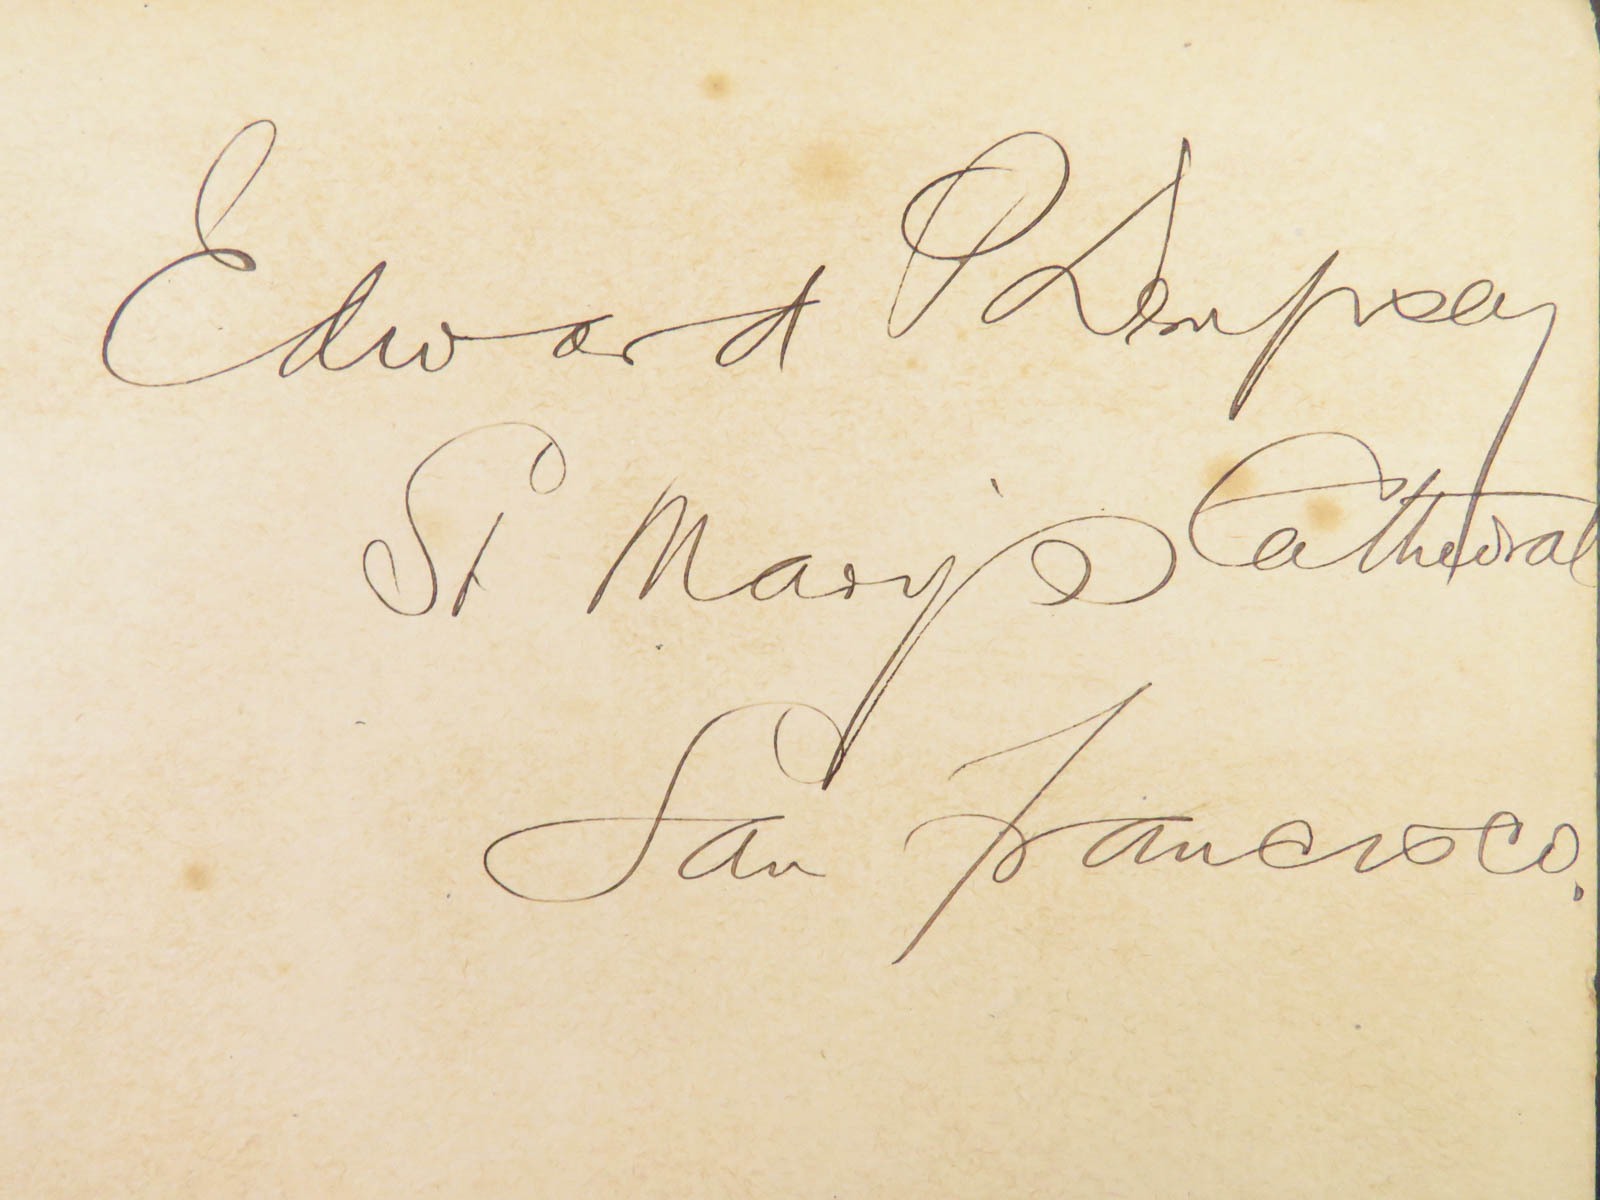 Edward P Dempsey
St Mary's Cathedral
San Francisco.